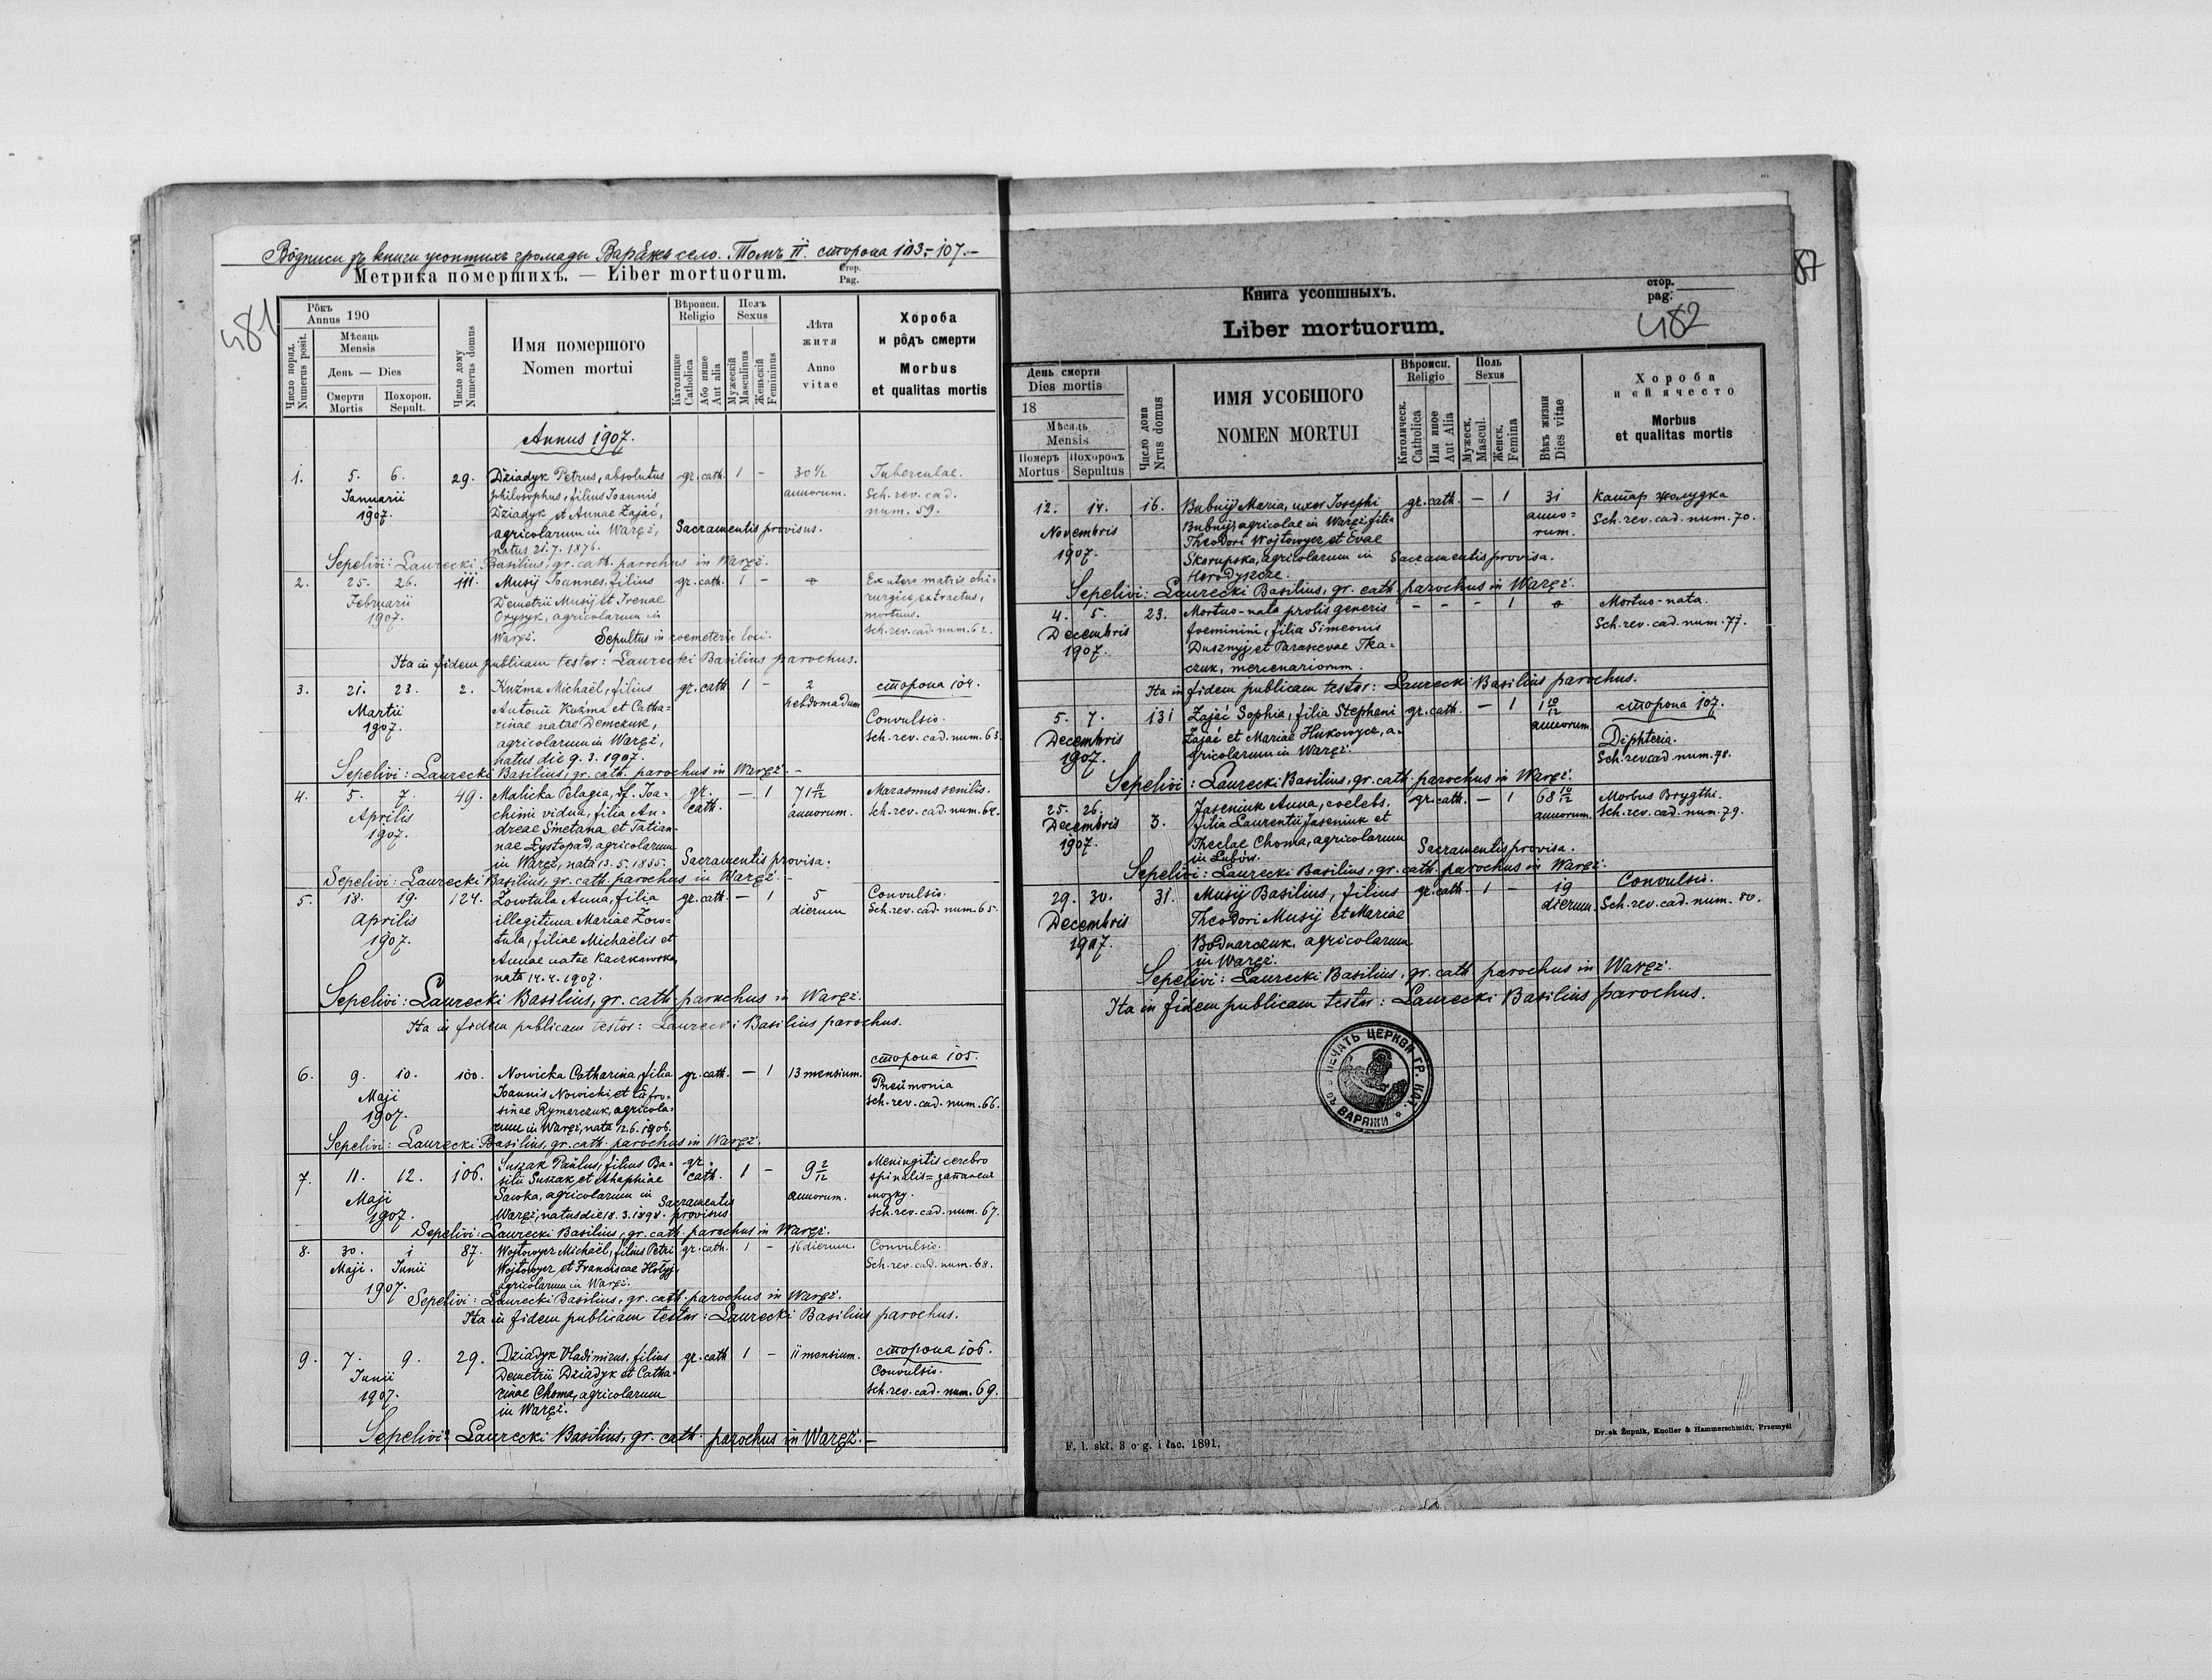 Вôдписи зъ книги усопшихъ громады Варѣжъ село. Томъ II. сторона 103–107.–
Метрика помершихъ. — Liber mortuorum.
Стор.
Pag.
481
Рôкъ
Annus 190
Мѣсяць
Mensis
День — Dies
Число поряд.
Numerus posit.
Смерти
Mortis
Похорон.
Sepult.
Число дому
Numerus domus
Имя помершого
Nomen mortui
Вѣроисп.
Religio
Католицке
Catholica
Або инше
Aut alia
Полъ
Sexus
Мужескій
Masculinus
Женьскій
Femininus
Лѣта
житя
Anno
vitae
Хороба
и рôдъ смерти
Morbus
et qualitas mortis
Annus 1907.
1. 5. 6. 29. Dziadyk Petrus, absolutus gr. cath. 1 – 30 ½ Tuberculae.
Januarii philosophus, filius Joannis annorum. Sch. rev. cad.
1907. Dziadyk et Annae Zajać, num. 59.
agricolarum in Waręż, Sacramentis provisus.
natus 21. 7. 1876.
Sepelivi: Laurecki Basilius, gr. cath. parochus in Waręż.
2. 25. 26. 111. Musij Joannes, filius gr. cath. 1 – Ex utero matris chi=
Februarii Demetrii Musij et Irenae rurgice extractus,
1907. Orysyk, agricolarum in mortuus.
Waręż. Sepultus in coemeterio loci. Sch. rev. cad. num. 62.
Ita in fidem publicam testor: Laurecki Basilius parochus.
3. 21. 23. 2. Kuźma Michaël, filius gr. cath. 1 – 2 сторона 104.
Martii Antonii Kuźma et Catha= hebdomadum Convulsio.
1907. rinae natae Demczuk, Sch. rev. cad. num. 63.
agricolarum in Waręż,
natus die 9. 3. 1907.
Sepelivi: Laurecki Basilius, gr. cath. parochus in Waręż. –
4. 5. 7. 49. Malicka Pelagia, Joa= gr. cath. – 1 71 11/12 Marasmus senilis.
Aprilis chimi vidua, filia An= annorum. Sch. rev. cad. num. 64.
1907. dreae Smetana et Tatian=
nae Lystopad, agricolarum
in Waręż, nata 13. 5. 1835. Sacramentis provisa.
Sepelivi: Laurecki Basilius, gr. cath. parochus in Waręż. –
5. 18. 19. 124. Zowtula Anna, filia gr. cath. – 1 5 Convulsio.
Aprilis illegitima Mariae Zow= dierum Sch. rev. cad. num. 65.
1907. tula, filiae Michaëlis et
Annae natae Kaczkowska,
nata 14. 4. 1907.
Sepelivi: Laurecki Basilius, gr. cath. parochus in Waręż.
Ita in fidem publicam testor: Laurecki Basilius parochus.
сторона 105.
6. 9. 10. 100. Nowicka Catharina, filia gr. cath. – 1 13 mensium. Pneumonia
Maji Joannis Nowicki et Eufro= Sch. rev. cad. num. 66.
1907. sinae Rymarczuk, agricola=
rum in Waręż, nata 12. 6. 1906.
Sepelivi: Laurecki Basilius, gr. cath. parochus in Waręż.
7. 11. 12. 106. Suszak Paulus, filius Ba= gr. cath. 1 – 9 2/12 Meningitis cerebro
Maji silii Suszak et Ahaphiae annorum. spinalis = запаленя
1907. Sawka, agricolarum in Sacramentis мозку.
Waręż, natus die 18. 3. 1898. provisus Sch. rev. cad. num. 67.
Sepelivi: Laurecki Basilius, gr. cath. parochus in Waręż.
8. 30. 1 87. Wojtowycz Michaël, filius Petri gr. cath. 1 – 16 dierum. Convulsio.
Maji. Junii Wojtowycz et Franciscae Hołyj Sch. rev. cad. num. 68.
1907. agricolarum in Waręż.
Sepelivi: Laurecki Basilius, gr. cath. parochus in Waręż.
Ita in fidem publicam testor: Laurecki Basilius parochus.
9. 7. 9. 29. Dziadyk Vladimirus, filius gr. cath 1 – 11 mensium. сторона 106.
Junii Demetrii Dziadyk et Catha= Convulsio.
1907. rinae Choma, agricolarum Sch. rev. cad. num. 69.
in Waręż.
Sepelivi: Laurecki Basilius, gr. cath. parochus in Waręż. –
87
Книга усопшныхъ.
стор.
pag.
482
Liber mortuorum.
День смерти
Dies mortis
18
Мѣсяць
Mensis
Померъ
Mortus
Похоронъ
Sepultus
Число дома
Nrus domus
ИМЯ УСОБШОГО
NOMEN MORTUI
Вѣроисп.
Religio
Католическ.
Catholica
Или иное
Aut Alia
Поль
Sexus
Мужеск.
Mascul.
Женск.
Femina
Вѣкъ жизни
Dies vitae
Хороба
и ей ячесто
Morbus
et qualitas mortis
12. 14. 16. Bubnij Maria, uxor Josephi gr. cath. – 1 31 Катар жолудка
Novembris Bubnij, agricolae in Waręż, filia anno= Sch. rev. cad. num. 70.
1907. Theodori Wojtowycz et Evae rum.
Skorupska, agricolarum in Sacramentis provisa.
Horodyszcze.
Sepelivi: Laurecki Basilius, gr. cath. parochus in Waręż.
4. 5. 23. Mortuo-nata prolis generis – – – 1 Mortuo-nata.
Decembris foeminini, filia Simeonis Sch. rev. cad. num. 77.
1907. Dusznyj et Parascevae Tka=
czuk, mercenariorum.
Ita in fidem publicam testor: Laurecki Basilius parochus.
5. 7. 131 Zajać Sophia, filia Stephani gr. cath. – 1 1 10/12 сторона 107.
Decembris Zajać et Mariae Hukowycz, a= annorum. Diphteria.
1907. gricolarum in Waręż. Sch. rev. cad. num. 78.
Sepelivi: Laurecki Basilius, gr. cath. parochus in Waręż.
25. 26. 3. Jaseniuk Anna, coelebs, gr. cath. – 1 68 10/12 Morbus Brygthi.
Decembris filia Laurentii Jaseniuk et annorum. Sch. rev. cad. num. 79.
1907. Theclae Choma, agricolarum
in Lubów. Sacramentis provisa.
Sepelivi: Laurecki Basilius, gr. cath. parochus in Waręż.
29. 30. 31. Musij Basilius, filius gr. cath. 1 – 19 Convulsio.
Decembris Theodori Musij et Mariae dierum. Sch. rev. cad. num. 80.
1907. Bodnarczuk, agricolarum
in Waręż.
Sepelivi: Laurecki Basilius, gr. cath. parochus in Waręż.
Ita in fidem publicam testor: Laurecki Basilius parochus.
ПЕЧАТЬ ЦЕРКВИ ГР. КАТ. ВЪ ВАРЯЖИ
F. l. skł. 3 o g. i łac. 1891.
Druk Żupnik, Knoller & Hammerschmidt, Przemyśl